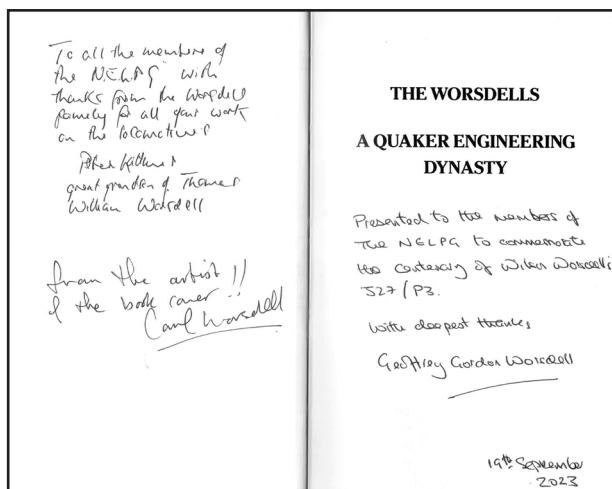 To all the members of
the N.E.L.P.G. with
thanks from the Worsdell
family for all your work
on the locomotives
great grandson of Thomas
William Worsdell
from the artist!!
of the book cover!!
Carol Worsdell
THE WORSDELLS
A QUAKER ENGINEERING
DYNASTY
Presented to the members of
The NELPG to commemorate
the centenary of Wilson Worsdell's
J27/P3.
With deepest thanks
Geoffrey Gordon Worsdell
19th September
2023